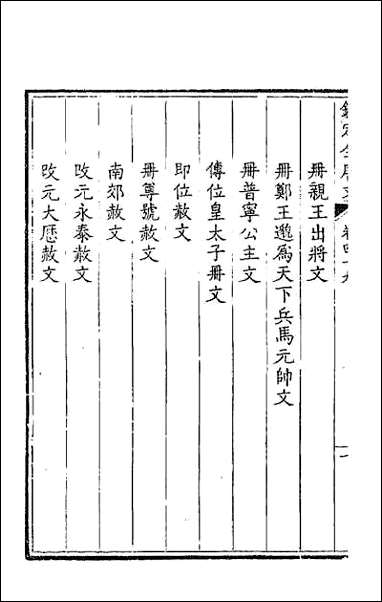 冊親王出將文
冊鄭王邈為天下兵馬元帥文
冊普寧公主文
傳位皇太子冊文
即位赦文
冊尊號赦文
南郊赦文
改元永泰赦文
改元大厯赦文